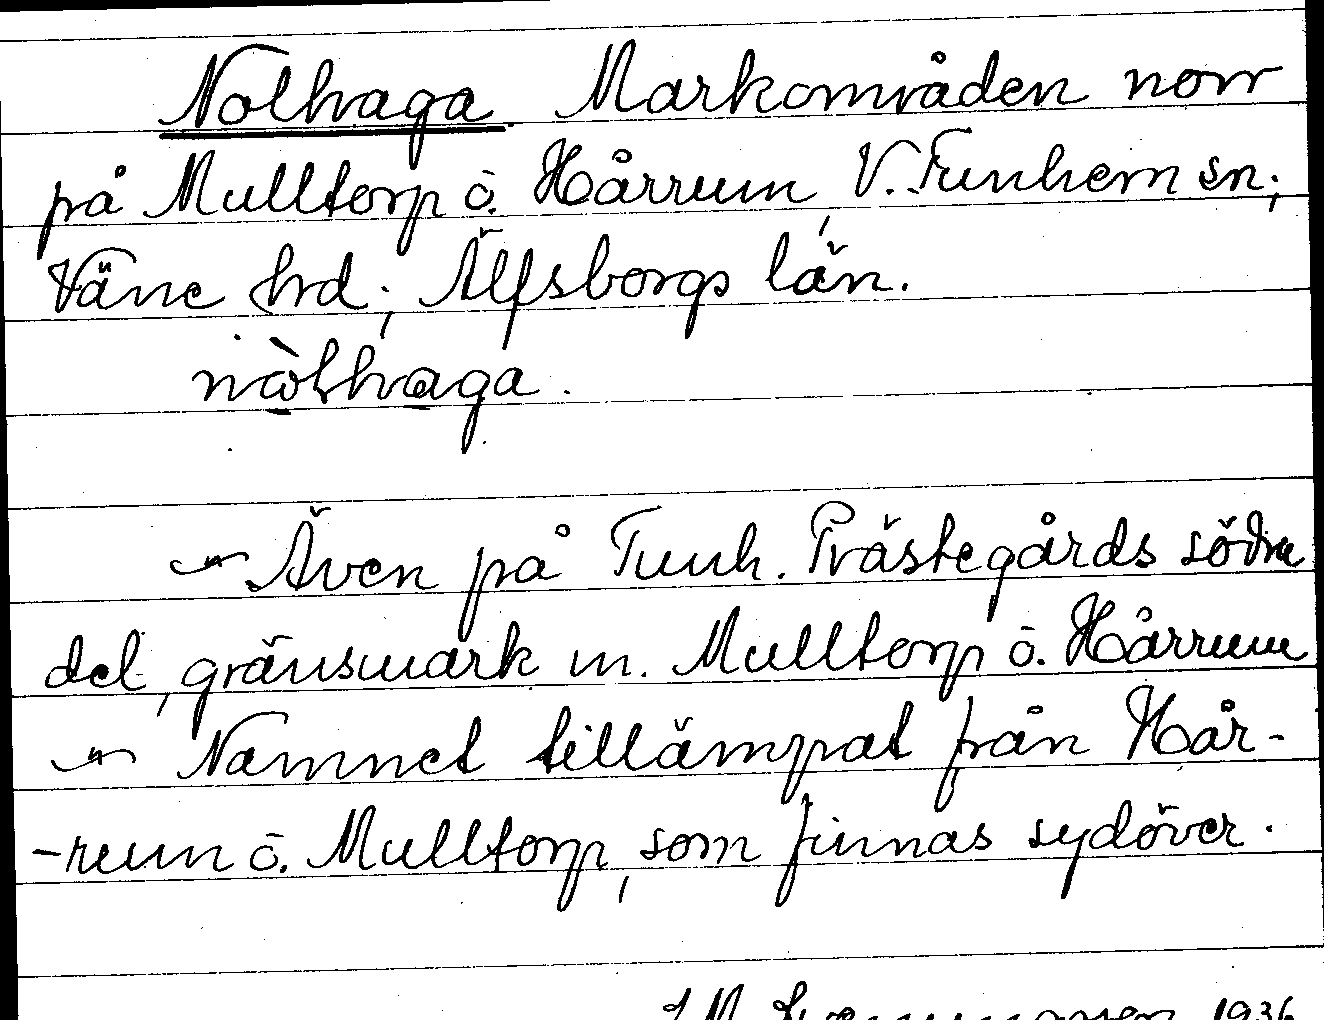 Nolhaga. Markområden norr
på Mulltorp o. Hårrum, V. Tunhem sn;
Väne hrd; Älfsborgs län.
nòlhaga.
Även på Tunh. Prästegårds södra
del, gränsmark m. Mulltorp o. Hårrum
Namnet tillämpat från Hår-
-rum o. Mulltorp, som finnas sydöver.
1936